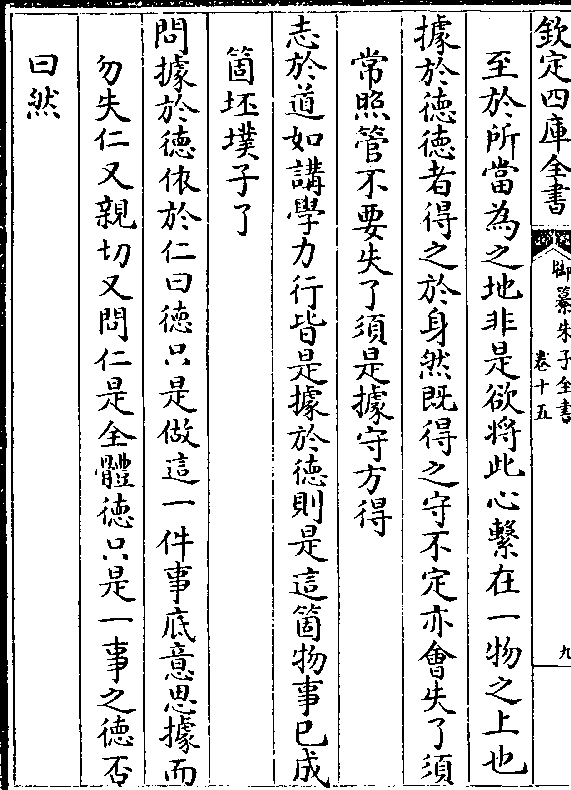 欽定四庫全書
御纂朱子全書
卷十五
九
至於所當為之地非是欲將此心繫在一物之上也
據於徳徳者得之於身然既得之守不定亦會失了須
常照管不要失了須是據守方得
志於道如講學力行皆是據於徳則是這箇物事已成
箇坯墣子了
問據於徳依於仁曰徳只是做這一件事底意思據而
勿失仁又親切又問仁是全體徳只是一事之徳否
曰然